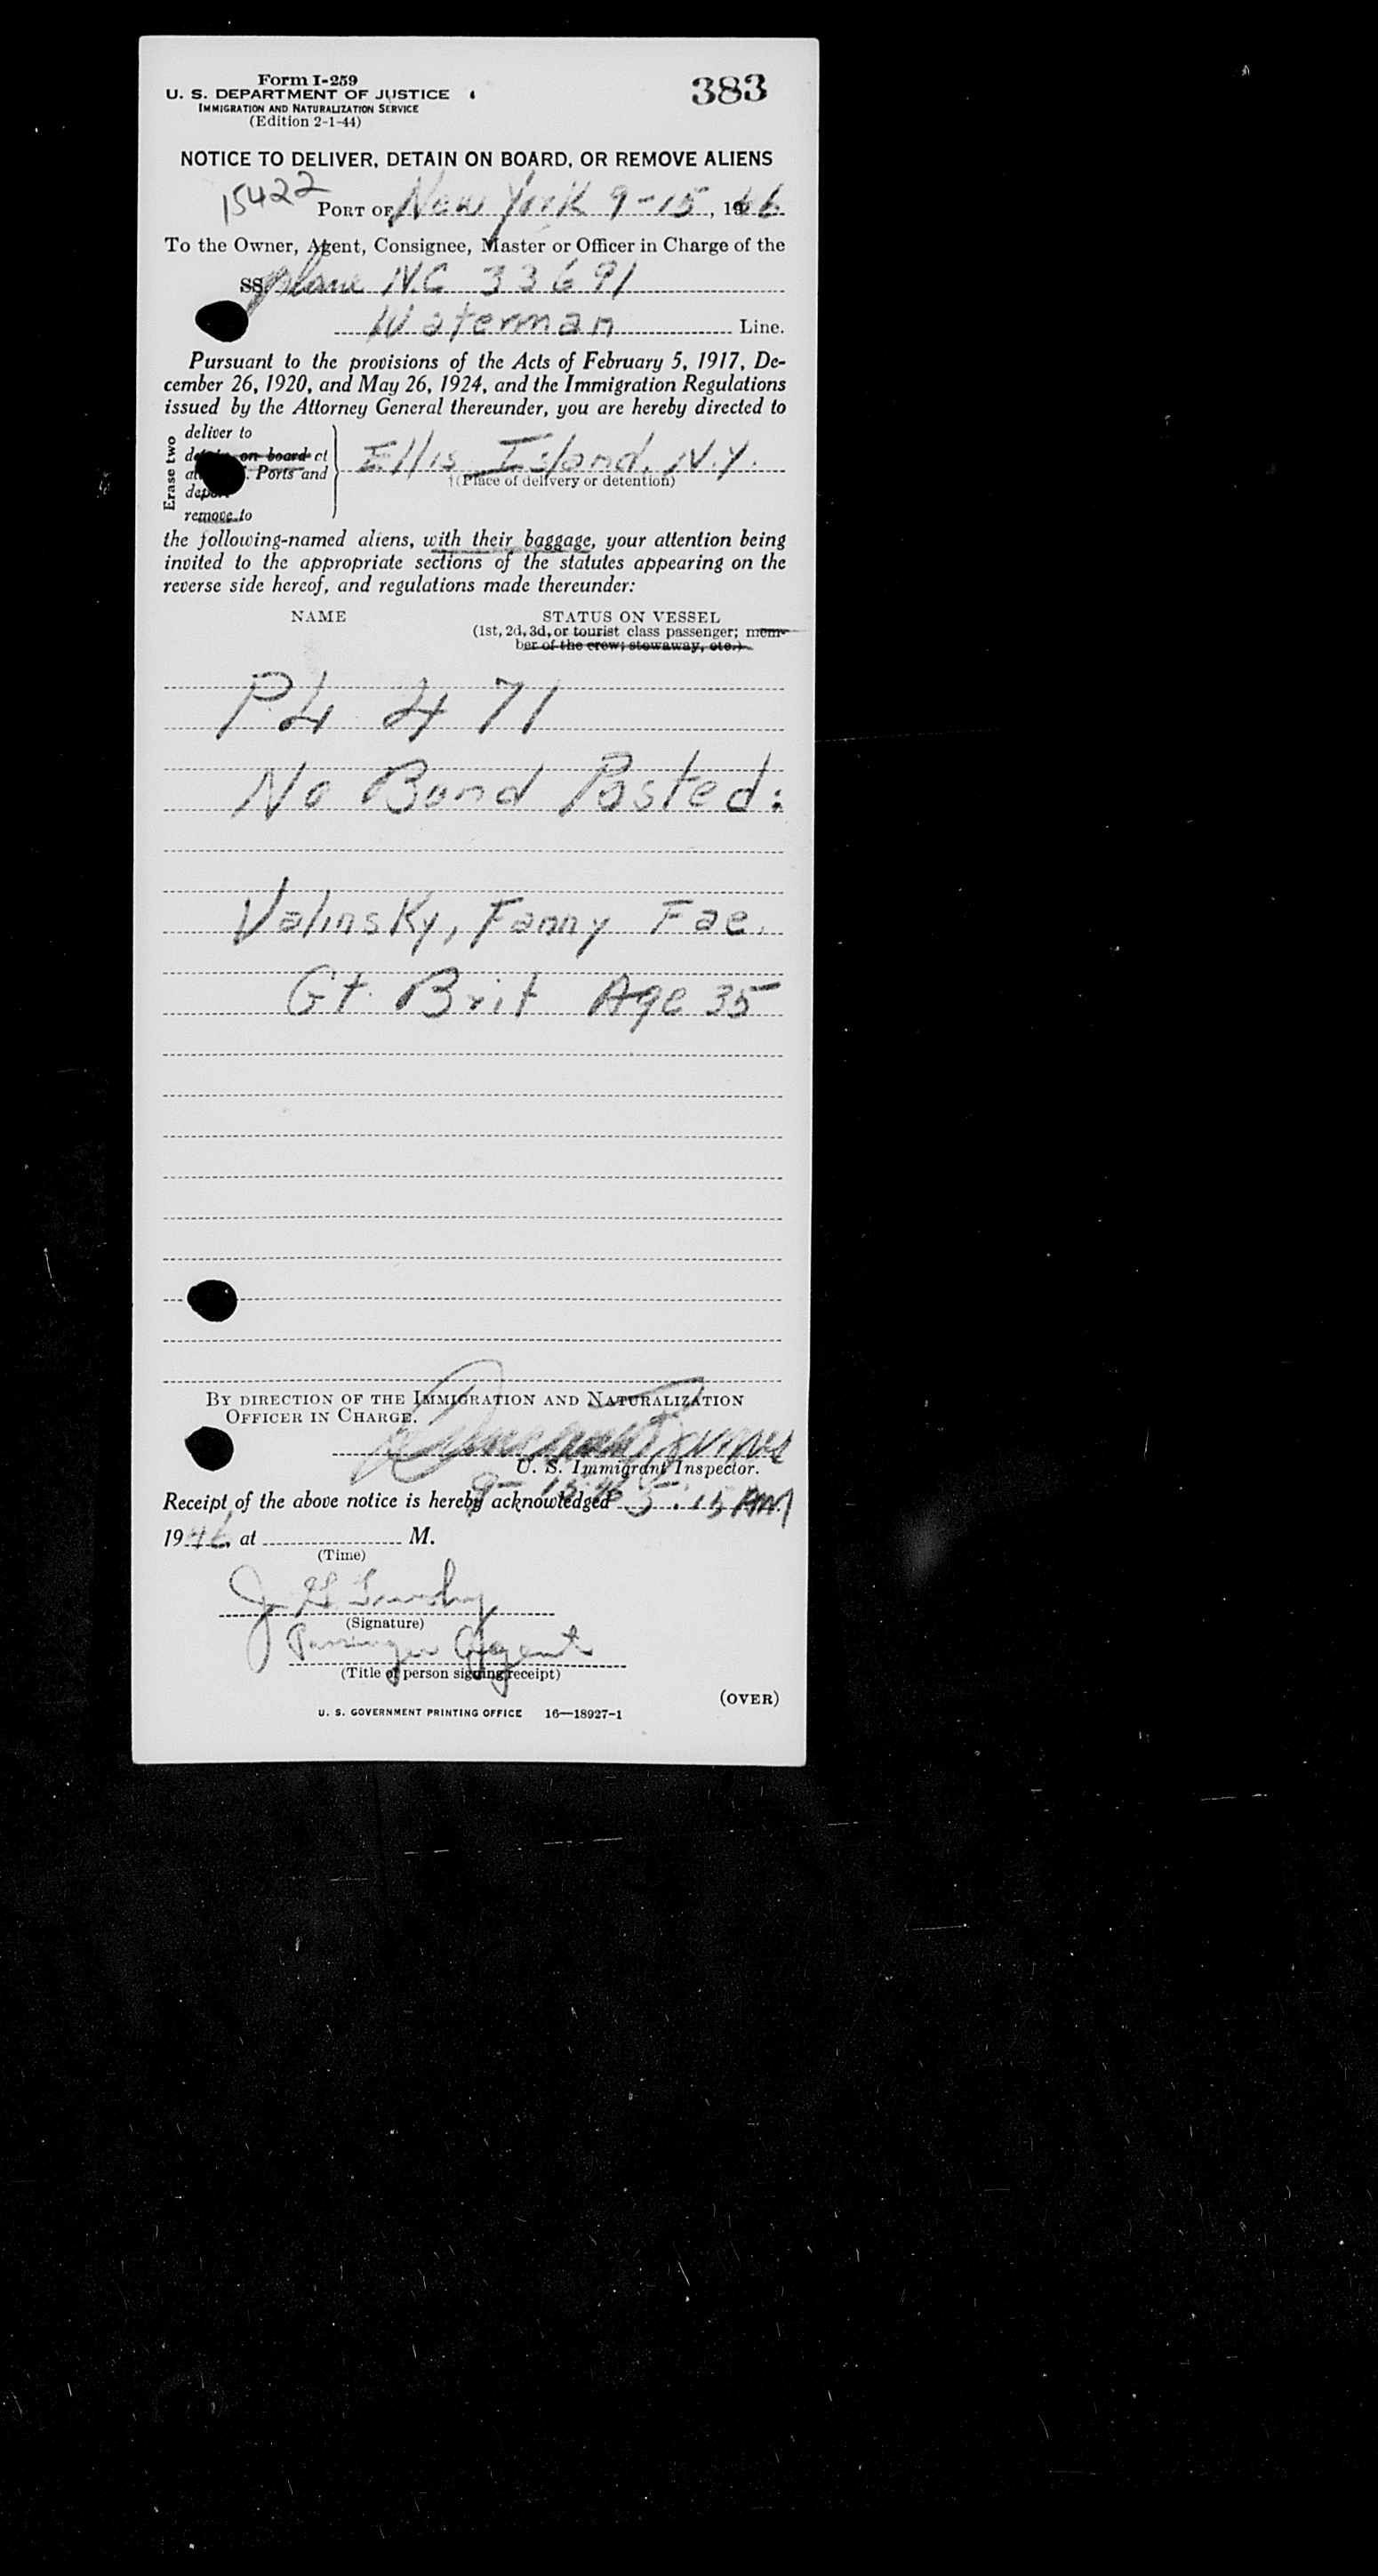 Form I-259
U. S. DEPARTMENT OF JUSTICE
IMMIGRATION AND NATURALIZATION SERVICE
(Edition 2-1-44)
383
NOTICE TO DELIVER, DETAIN ON BOARD, OR REMOVE ALIENS
15422
PORT OF New York 9-15, 1946
To the Owner, Agent, Consignee, Master or Officer in Charge of the
SS plane NC 33691
Waterman Line.
Pursuant to the provisions of the Acts of February 5, 1917, De-
cember 26, 1920, and May 26, 1924, and the Immigration Regulations
issued by the Attorney General thereunder, you are hereby directed to
Erase two
deliver to
on board at
Ports and
remove to
Ellis Island, N.Y.
†(Place of delivery or detention)
the following-named aliens, with their baggage, your attention being
invited to the appropriate sections of the statutes appearing on the
reverse side hereof, and regulations made thereunder:
NAME
STATUS ON VESSEL
(1st, 2d, 3d, or tourist class passenger; mem-
ber of the crew; stowaway, etc.)
PL 471
No Bond Posted:
Valinsky, Fanny Fae.
Gt. Brit Age 35
BY DIRECTION OF THE IMMIGRATION AND NATURALIZATION
OFFICER IN CHARGE.
U. S. Immigrant Inspector.
Receipt of the above notice is hereby acknowledged 9-15-46 5:15 AM
1946, at M.
(Time)
(Signature)
Passenger Agent
(Title of person signing receipt)
(OVER)
U. S. GOVERNMENT PRINTING OFFICE 16—18927-1